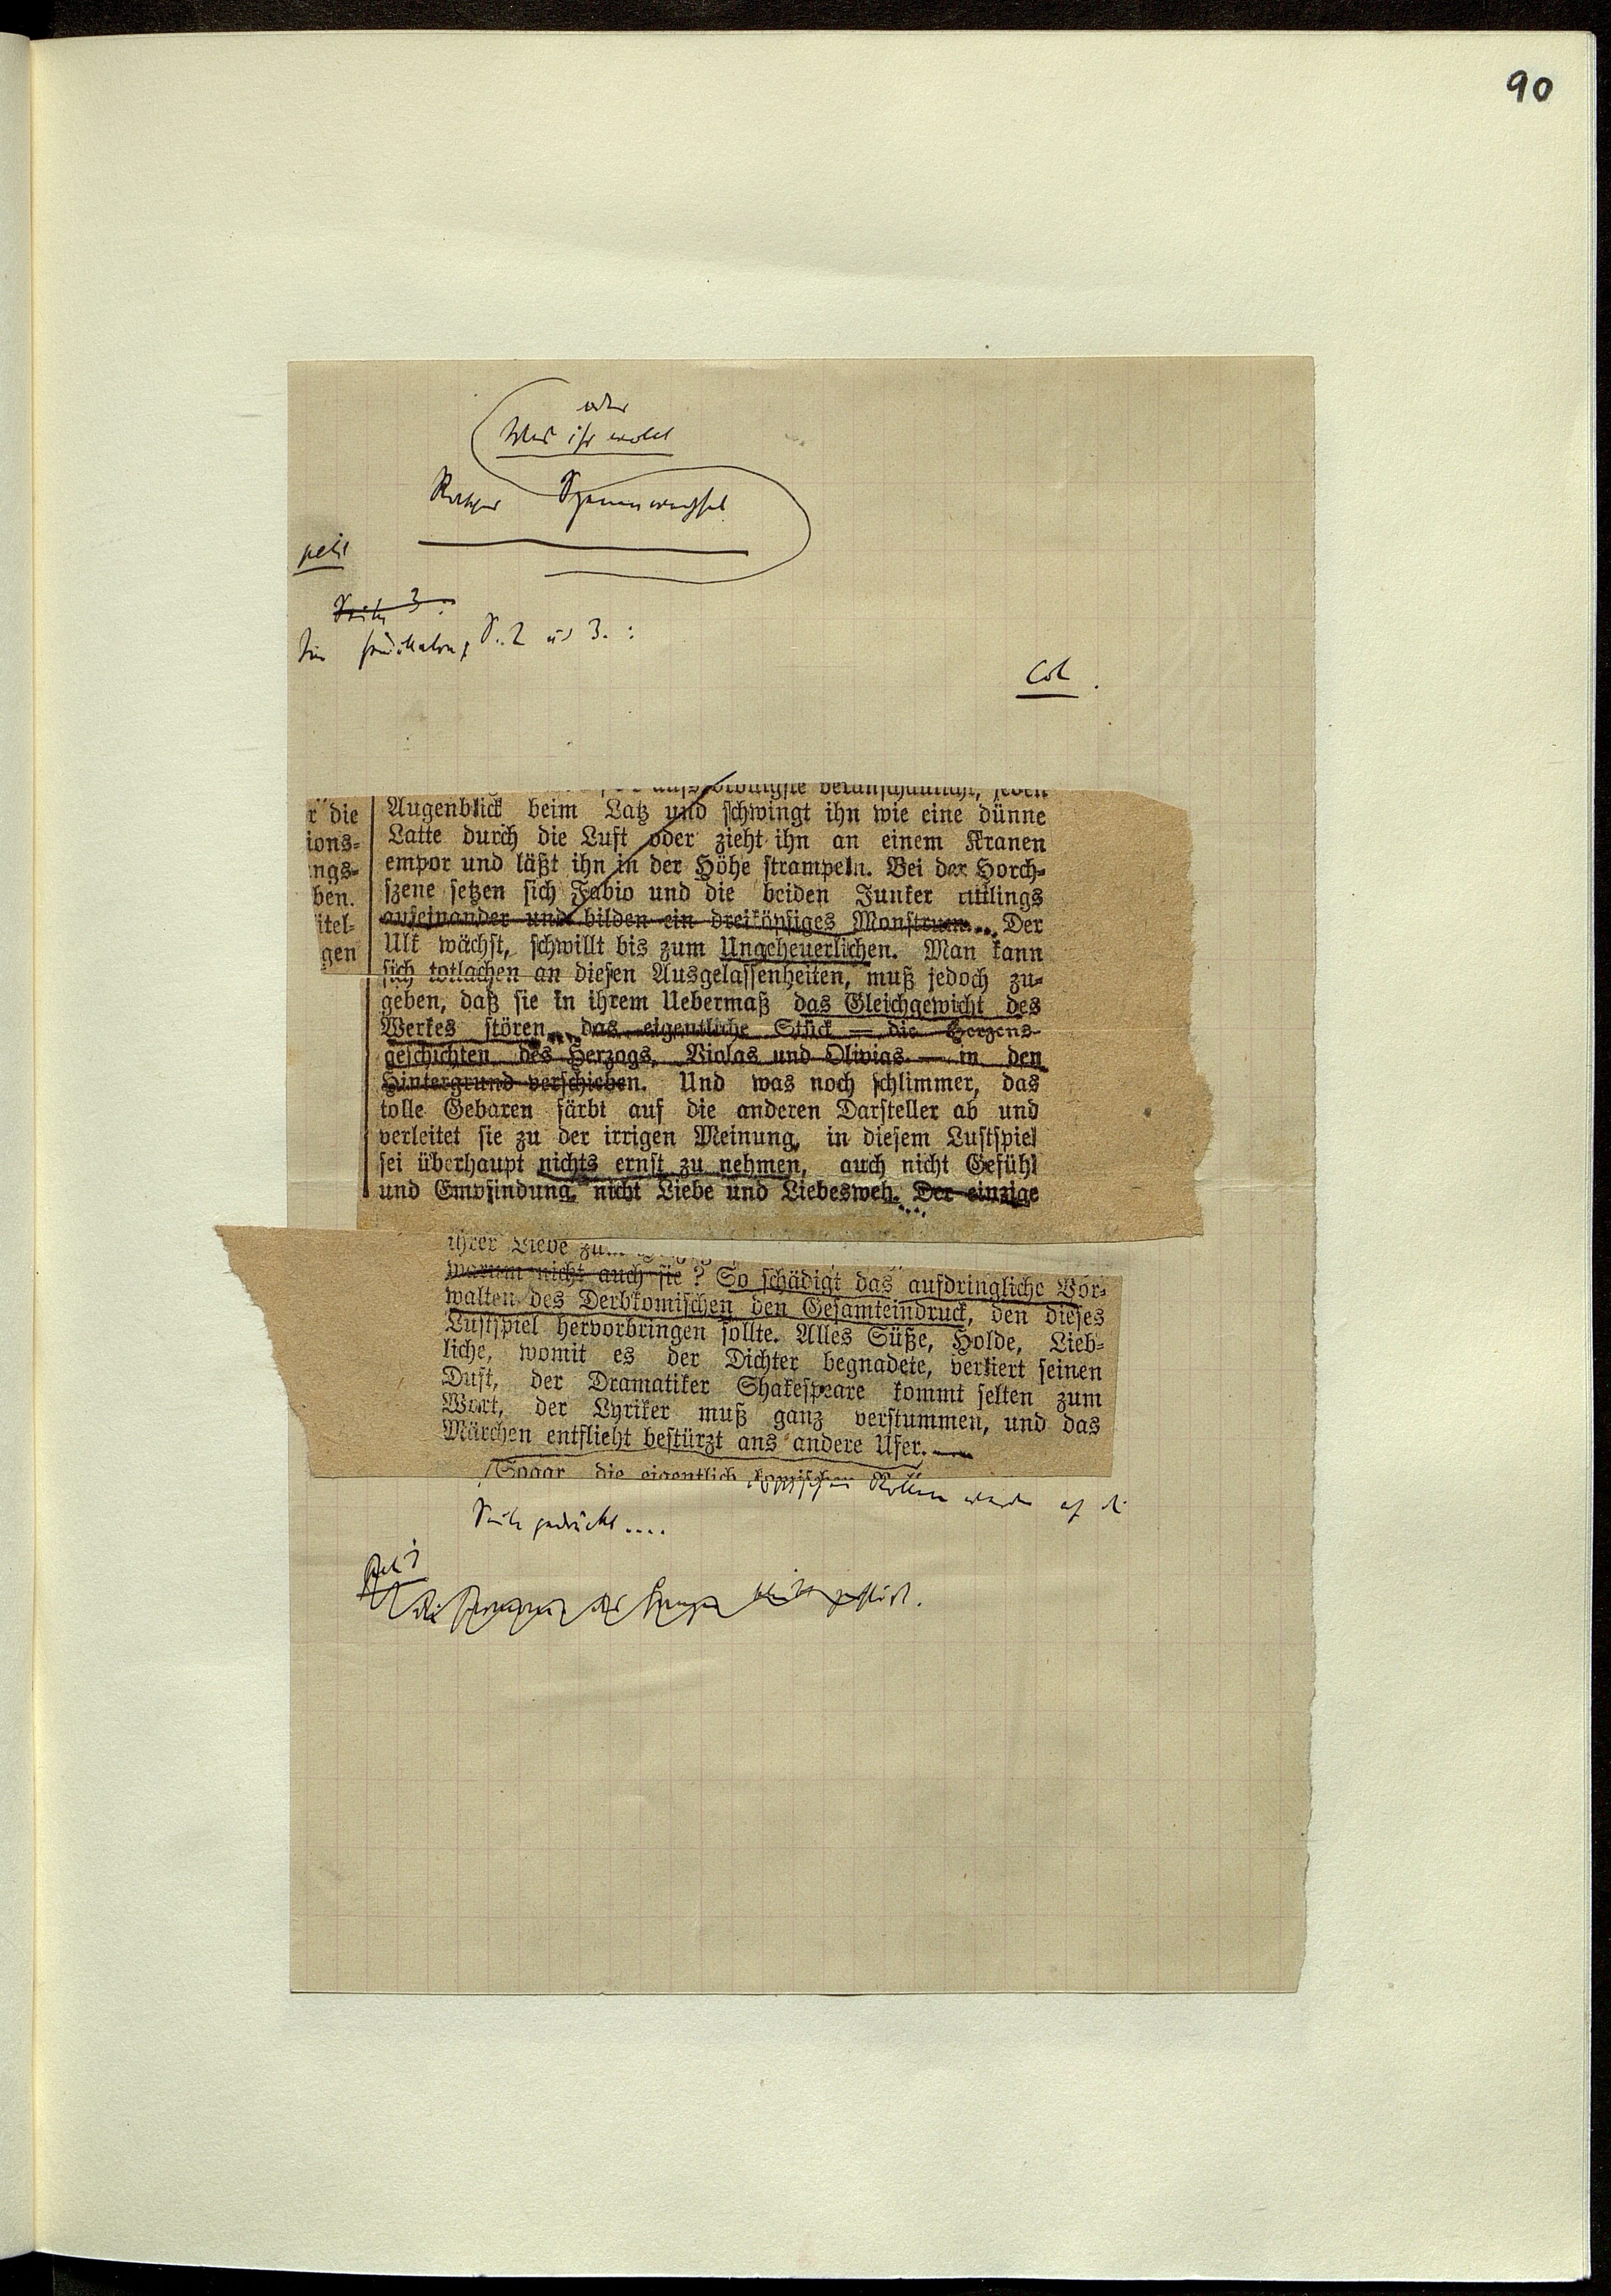 90
oder
Was ihr wollt
Rascher Szenenwechsel
petit
Seite 3.
S. 2 und 3. :
Col.
veranschaulicht, jeden
r die
ions-
ngs-
ben.
itel-
gen
Augenblick beim Latz und schwingt ihn wie eine dünne
Latte durch die Luft oder zieht ihn an einem Kranen
empor und läßt ihn in der Höhe strampeln. Bei der Horch-
szene setzen sich Fabio und die beiden Junker rittlings
aufeinander und bilden ein dreiköpfiges Monstrum... Der
Ulk wächst, schwillt bis zum Ungeheuerlichen. Man kann
sich totlachen an diesen Ausgelassenheiten, muß jedoch zu-
geben, daß sie in ihrem Uebermaß das Gleichgewicht des
Werkes stören, das eigentliche Stück — die Herzens-
geschichten des Herzogs, Violas und Olivias — in den
Hintergrund verschieben. Und was noch schlimmer, das
tolle Gebaren färbt auf die anderen Darsteller ab und
verleitet sie zu der irrigen Meinung, in diesem Lustspiel
sei überhaupt nichts ernst zu nehmen, auch nicht Gefühl
und Empfindung, nicht Liebe und Liebesweh. Der einzige
ihrer Liebe zum
warum nicht auch sie? So schädigt das aufdringliche Vor-
walten des Derbkomischen den Gesamteindruck, den dieses
Lustspiel hervorbringen sollte. Alles Süße, Holde, Lieb-
liche, womit es der Dichter begnadete, verliert seinen
Duft, der Dramatiker Shakespeare kommt selten zum
Wort, der Lyriker muß ganz verstummen, und das
Märchen entflieht bestürzt ans andere Ufer. —
Sogar die eigentlich komischen Rollen werden auf die
Seite gedrückt....